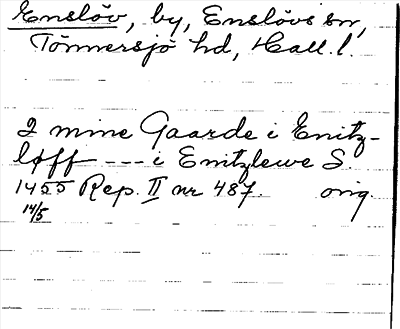 Enslöv, by, Enslövs sn,
Tönnersjö hd, Hall. l.
2 mine Gaarde i Enitz-
løff --- i Enitzlewe S.
1455 Rep. II nr 487. orig.
14/5